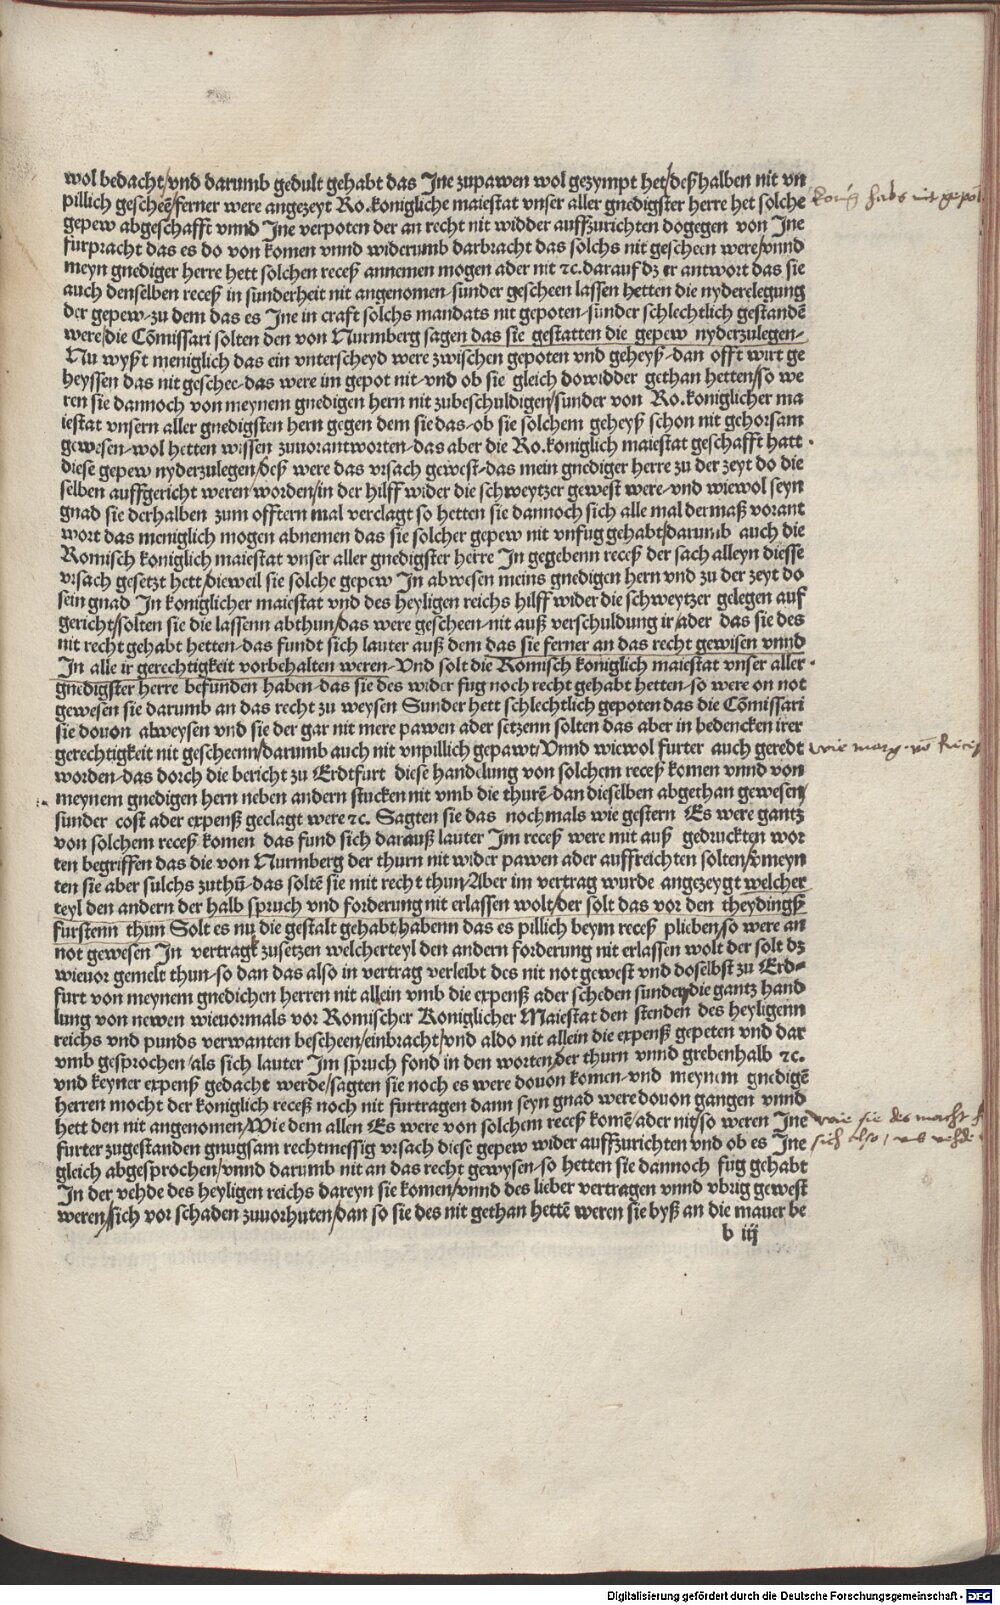 wol bedacht/vnd darumb gedult gehabt das Jne zupawen wol gezympt het/deßhalben nit vn
pillich gescheẽ/ferner were angezeyt Ro.konigliche maiestat vnser aller gnedigster herre het solche
gepew abgeschafft vnnd Jne verpoten der an recht nit widder auffzurichten dogegen von Jne
furpracht das es do von komen vnnd widerumb darbracht das solchs nit gescheen were/vnnd
meyn gnediger herre hett solchen receß annemen mogen ader nit ꝛc.darauf dz er antwort das sie
auch denselben receß in sunderheit nit angenomen-sunder gescheen lassen hetten die nyderelegung
der gepew-zu dem das es Jne in craft solchs mandats nit gepoten-sunder schlechtlich gestandẽ
were/die Cõmissari solten den von Nurmberg sagen das sie gestatten die gepew nyderzulegen-
Nu wyßt meniglich das ein vnterscheyd were zwischen gepoten vnd geheyß-dan offt wirt ge
heyssen das nit geschee-das were im gepot nit-vnd ob sie gleich dowidder gethan hetten/so we
ren sie dannoch von meynem gnedigen hern nit zubeschuldigen/sunder von Ro.koniglicher ma
iestat vnsern aller gnedigsten hern gegen dem sie das-ob sie solchem geheyß schon nit gehorsam
gewesen-wol hetten wissen zuuorantworten-das aber die Ro.koniglich maiestat geschafft hatt
diese gepew nyderzulegen/deß were das vrsach gewest-das mein gnediger herre zu der zeyt do die
selben auffgericht weren worden/in der hilff wider die schweytzer gewest were-vnd wiewol seyn
gnad sie derhalben zum offtern mal verclagt so hetten sie dannoch sich alle mal dermaß vorant
wort das meniglich mogen abnemen das sie solcher gepew nit vnfug gehabt/darumb auch die
Romisch koniglich maiestat vnser aller gnedigster herre Jn gegebenn receß der sach alleyn diesse
vrsach gesetzt hett/dieweil sie solche gepew Jn abwesen meins gnedigen hern vnd zu der zeyt do
sein gnad Jn koniglicher maiestat vnd des heyligen reichs hilff wider die schweytzer gelegen auf
gericht/solten sie die lassenn abthun/das were gescheen-nit auß verschuldung ir/ader das sie des
nit recht gehabt hetten-das fundt sich lauter auß dem das sie ferner an das recht gewisen vnnd
Jn alle ir gerechtigkeit vorbehalten weren-Vnd solt die Romisch koniglich maiestat vnser aller
gnedigster herre befunden haben-das sie des wider fug noch recht gehabt hetten-so were on not
gewesen sie darumb an das recht zu weysen Sunder hett schlechtlich gepoten das die Cõmissari
sie douon abweysen vnd sie der gar nit mere pawen ader setzenn solten das aber in bedencken irer
gerechtigkeit nit gescheenn/darumb auch nit vnpillich gepawt/Vnnd wiewol furter auch geredt
worden-das dorch die bericht zu Erdtfurt diese handelung von solchem receß komen vnnd von
meynem gnedigen hern neben andern stucken nit vmb die thurẽ-dan dieselben abgethan gewesen/
sunder cost ader expenß geclagt were ꝛc. Sagten sie das nochmals wie gestern Es were gantz
von solchem receß komen das fund sich darauß lauter Jm receß were mit auß gedruckten wor
ten begriffen das die von Nurmberg der thurn nit wider pawen ader auffreichten solten/v̈meyn
ten sie aber sulchs zuthũ-das soltẽ sie mit recht thun/Aber im vertrag wurde angezeygt welcher
teyl den andern der halb spruch vnd forderung nit erlassen wolt/der solt das vor den theydingß
furstenn thun Solt es nu die gestalt gehabt habenn das es pillich beym receß plieben/so were an
not gewesen Jn vertragk zusetzen welcherteyl den andern forderung nit erlassen wolt der solt dz
wieuor gemelt thun-so dan das also in vertrag verleibt des nit not gewest vnd doselbst zu Erd-
furt von meynem gnedichen herren nit allein vmb die expenß ader scheden sunder/die gantz hand
lung von newen wieuormals vor Romischer Koniglicher Maiestat den stenden des heyligenn
reichs vnd punds verwanten bescheen/einbracht/vnd aldo nit allein die expenß gepeten vnd dar
vmb gesprochen/als sich lauter Jm spruch fond in den worten/der thurn vnnd grebenhalb ꝛc.
vnd keyner expenß gedacht werde/sagten sie noch es were douon komen-vnd meynem gnedigẽ
herren mocht der koniglich receß noch nit furtragen dann seyn gnad were douon gangen vnnd
hett den nit angenomen/Wie dem allen Es were von solchem receß komẽ/ader nit/so weren Jne
furter zugestanden gnugsam rechtmessig vrsach diese gepew wider auffzurichten vnd ob es Jne
gleich abgesprochen/vnnd darumb nit an das recht gewysen-so hetten sie dannoch fug gehabt
Jn der vehde des heyligen reichs dareyn sie komen/vnnd des lieber vertragen vnnd vbrig gewest
weren/sich vor schaden zuuorhuten/dan so sie des nit gethan hettẽ weren sie byß an die mauer be
b iij
konig habs nit gepot
wie marg. võ
wie sie des macht
sich also
Digitalisierung gefördert durch die Deutsche Forschungsgemeinschaft - DFG